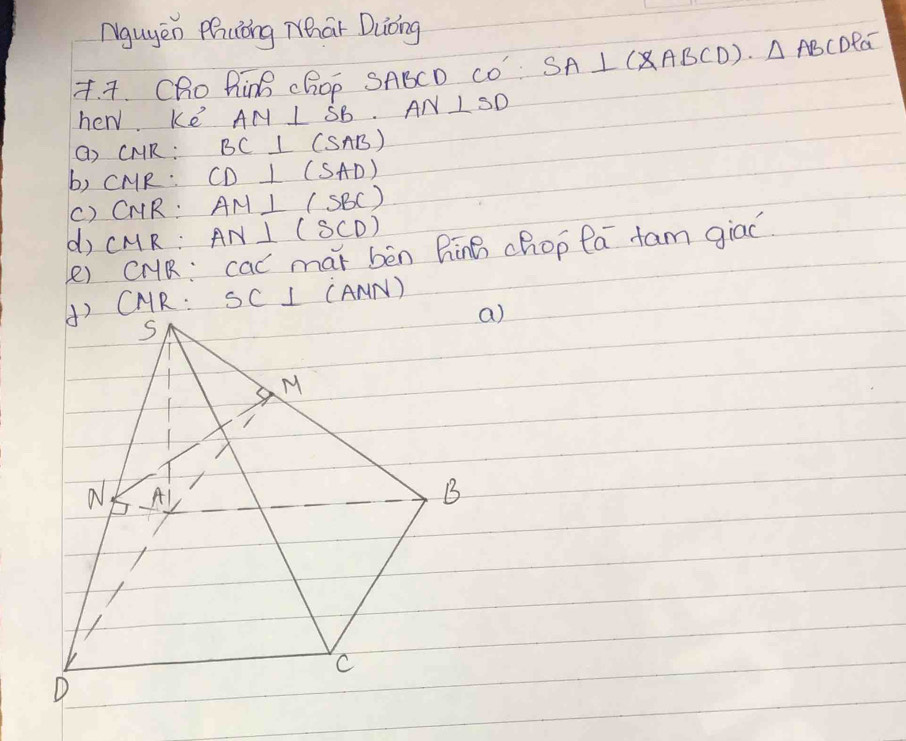 Nguyễn Phương Nhật Dương
7.7. Cho hình chóp SABCD có: SA ⊥ (ABCD). Δ ABCD là
hcn. Kẻ AM ⊥ SB. AN ⊥ SD
a) CMR: BC ⊥ (SAB)
b) CMR: CD ⊥ (SAD)
c) CMR: AM ⊥ (SBC)
d) CMR: AN ⊥ (SCD)
e) CMR: các mặt bên hình chóp là tam giác.
f) CMR: SC ⊥ (AMN)
a)
S
M
N
A
B
C
D